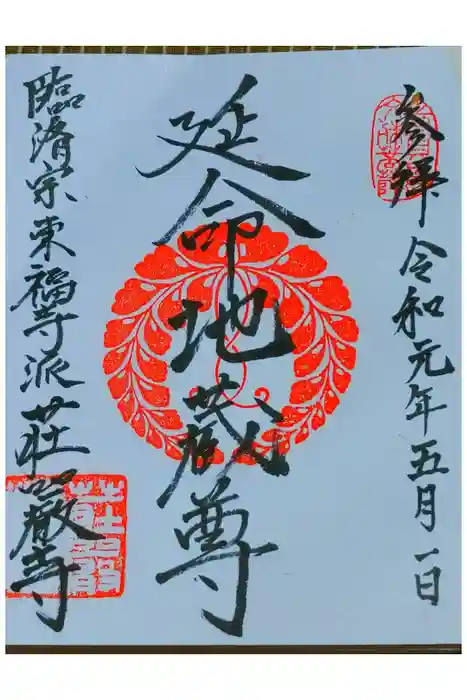 参拝
令和元年五月一日
延命地蔵尊
臨済宗東福寺派荘厳寺